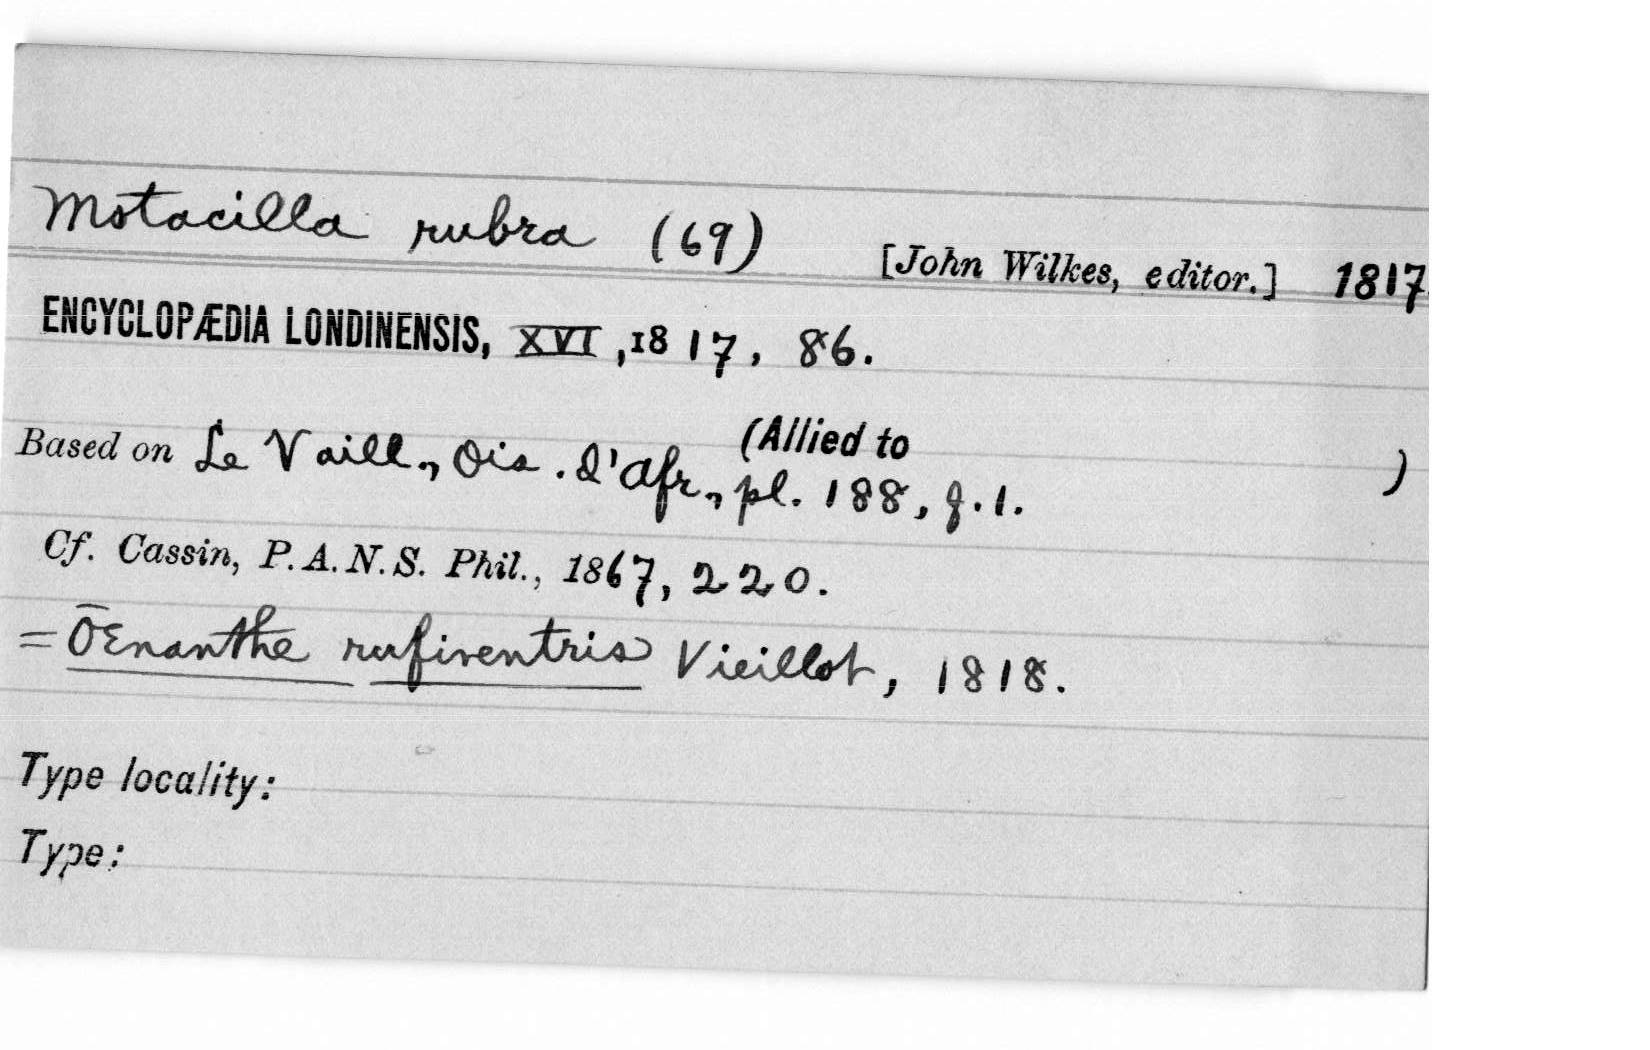 Motacilla rubra (69)
[John Wilkes, editor.] 1817.
ENCYCLOPÆDIA LONDINENSIS, XVI, 1817, 86.
(Allied to )
Based on Le Vaill., Ois. d'Afr., pl. 188, f. 1.
Cf. Cassin, P. A. N. S. Phil., 1867, 220.
= OEnanthe rufiventris Vieillot, 1818.
Type locality:
Type: